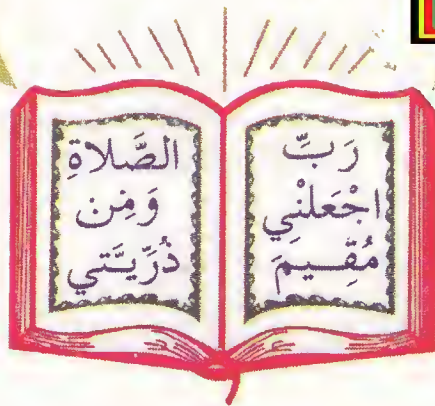 رَبِّ
اجْعَلْنِي
مُقِيمَ
الصَّلَاةِ
وَمِن
ذُرِّيَّتِي